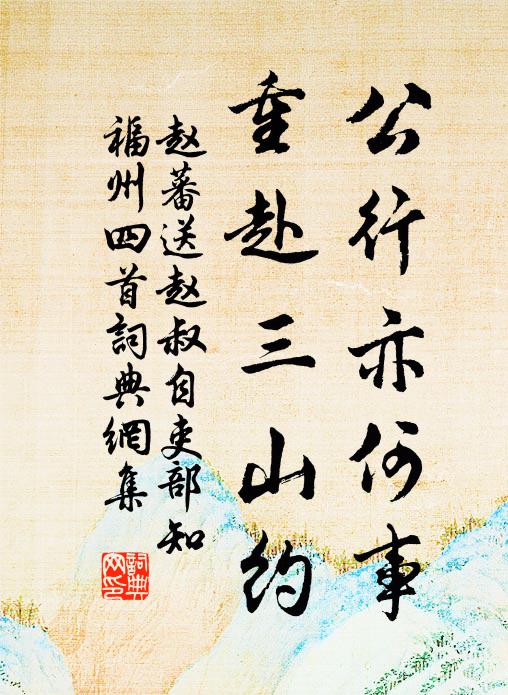 公行亦何事
重赴三山约
赵蕃送赵叔自吏部知
福州四首詞典網集
詞典
网印